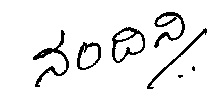 ನಂದಿನಿ